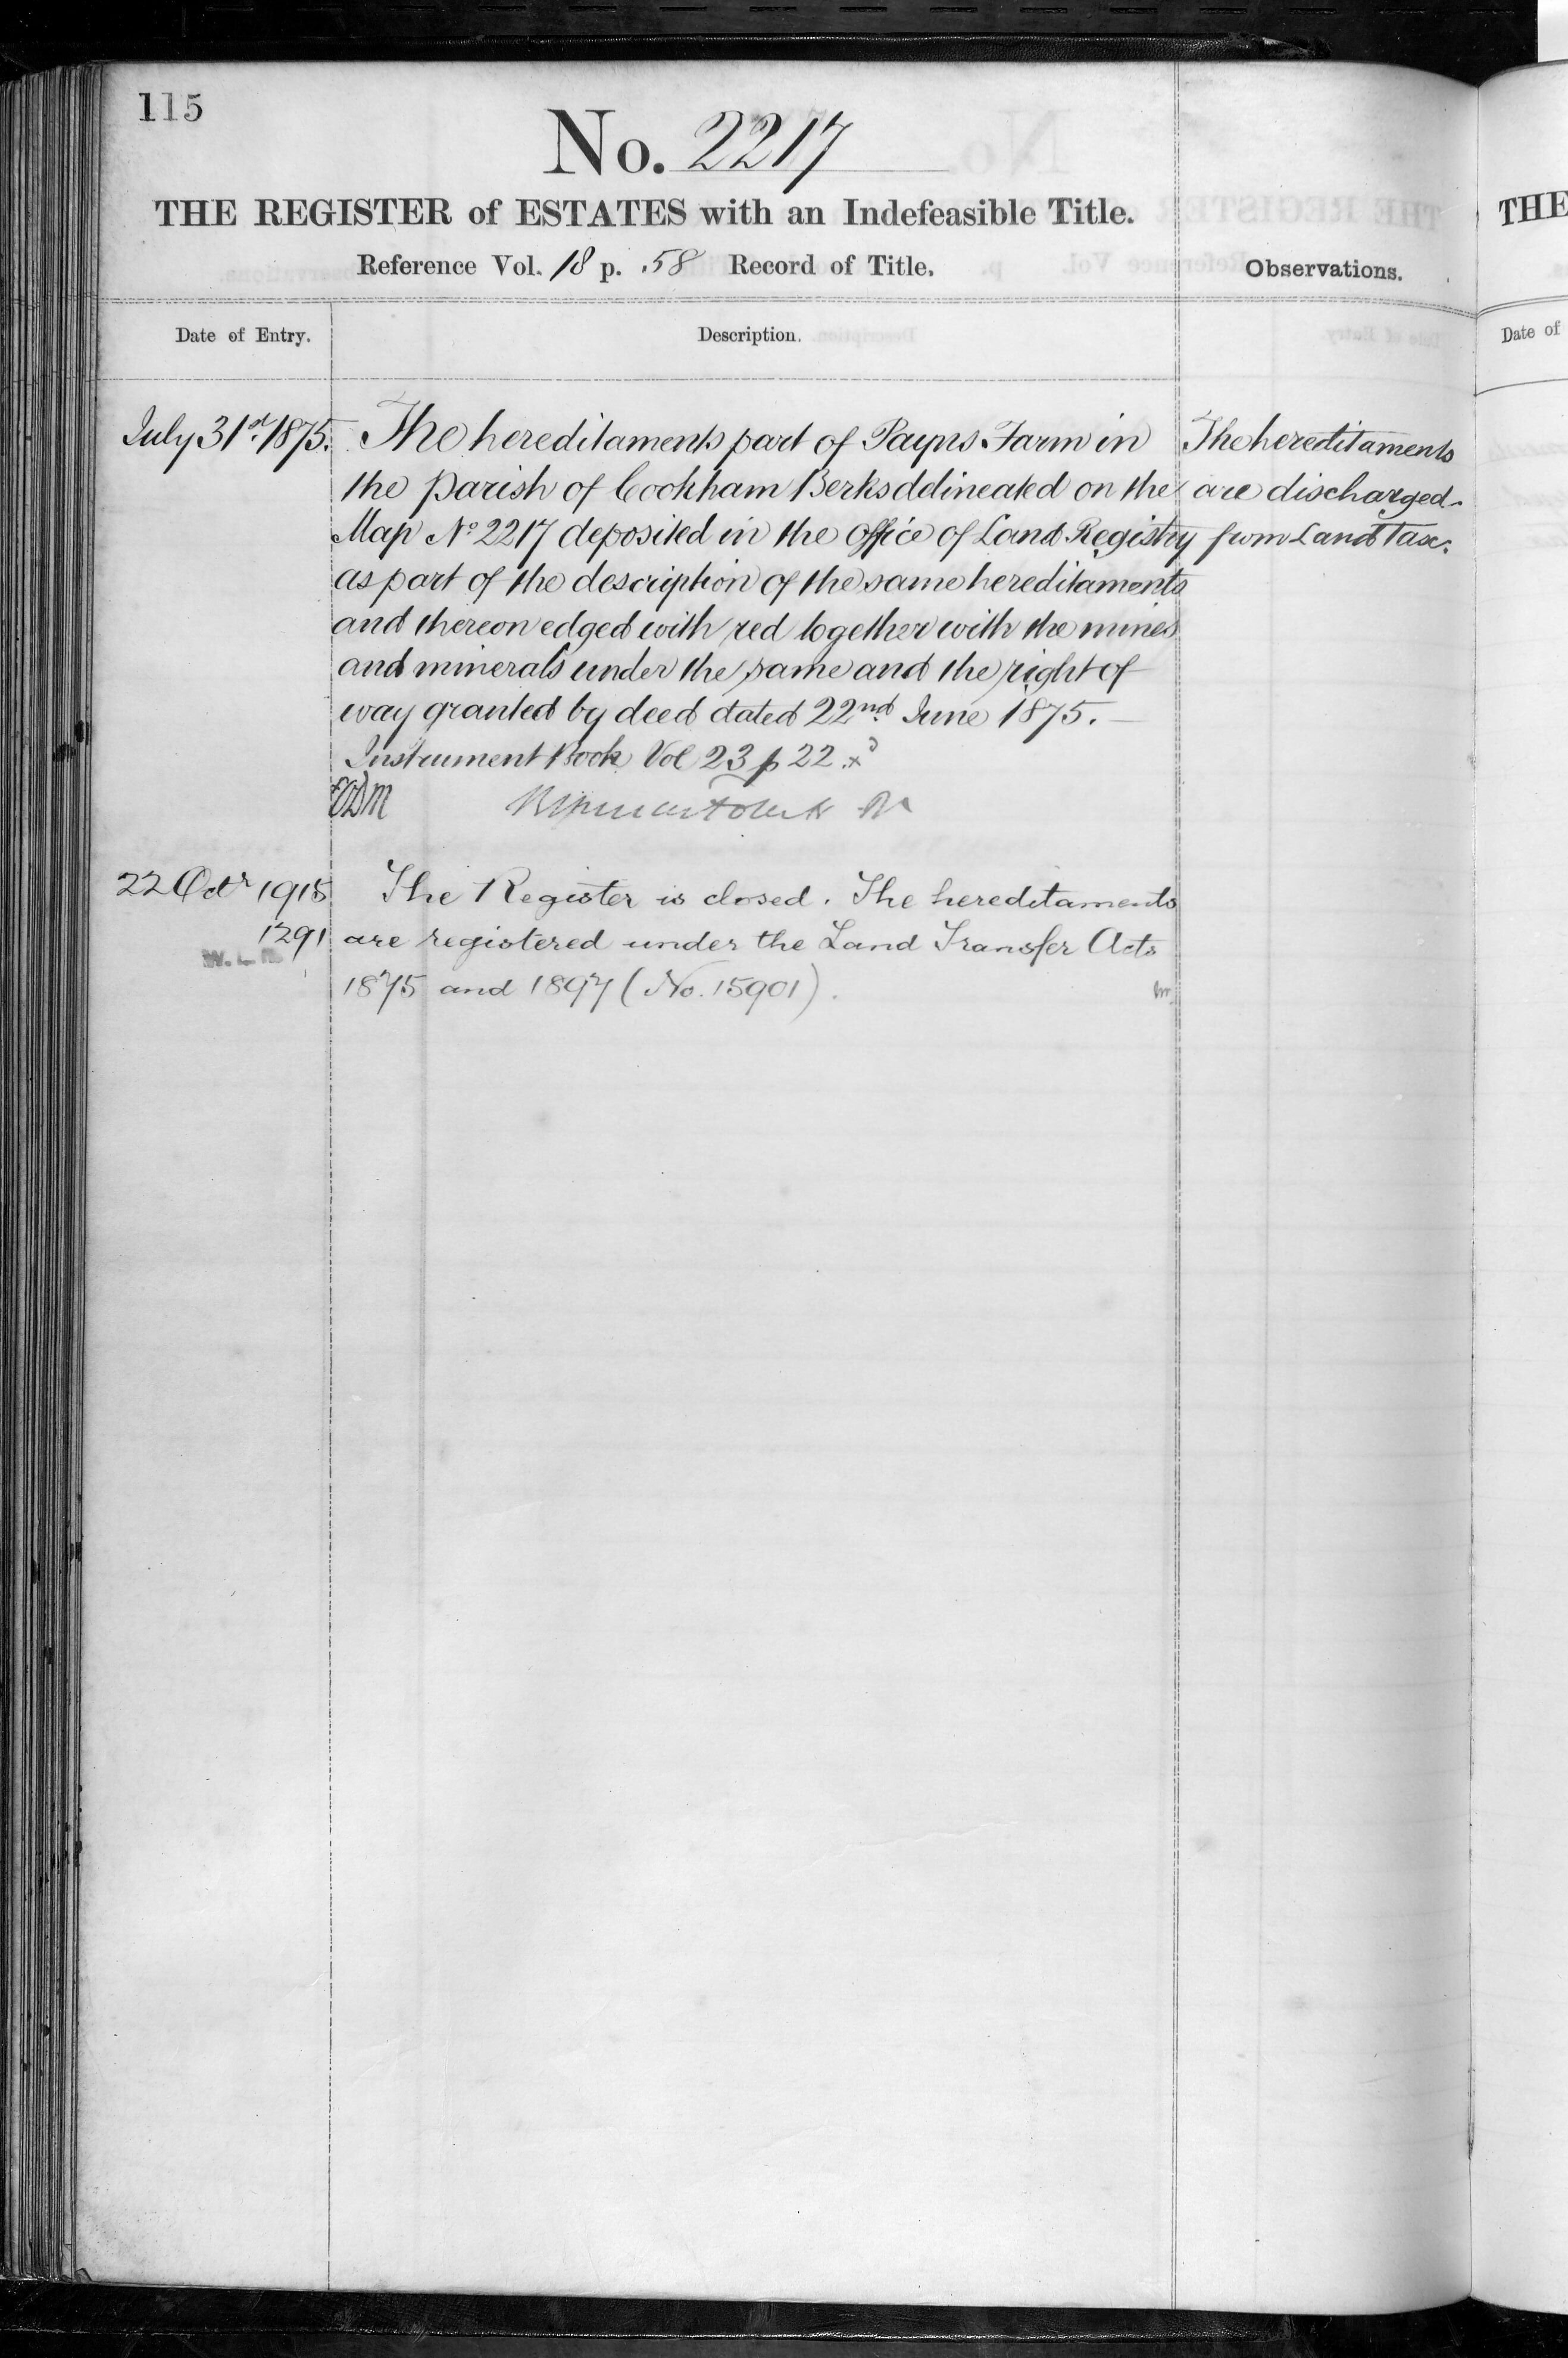 115
No. 2217
THE REGISTER of ESTATES with an Indefeasible Title.
Reference Vol. 18 p. 58 Record of Title.
Observations.
Date of Entry.
Description.
July 31st 1875.
The hereditaments part of Payns Farm in
the parish of Cookham Berks delineated on the
Map No 2217 deposited in the Office of Land Registry
as part of the description of the same hereditaments
and thereon edged with red together with the mines
and minerals under the same and the right of
way granted by deed dated 22nd June 1875.—
Instrument Book Vol 23 p 22
The hereditaments
are discharged
from Land Tax.
22 Octr 1918
1291
The Register is closed. The hereditaments
are registered under the Land Transfer Acts
1875 and 1897 (No. 15901).
THE
Date of